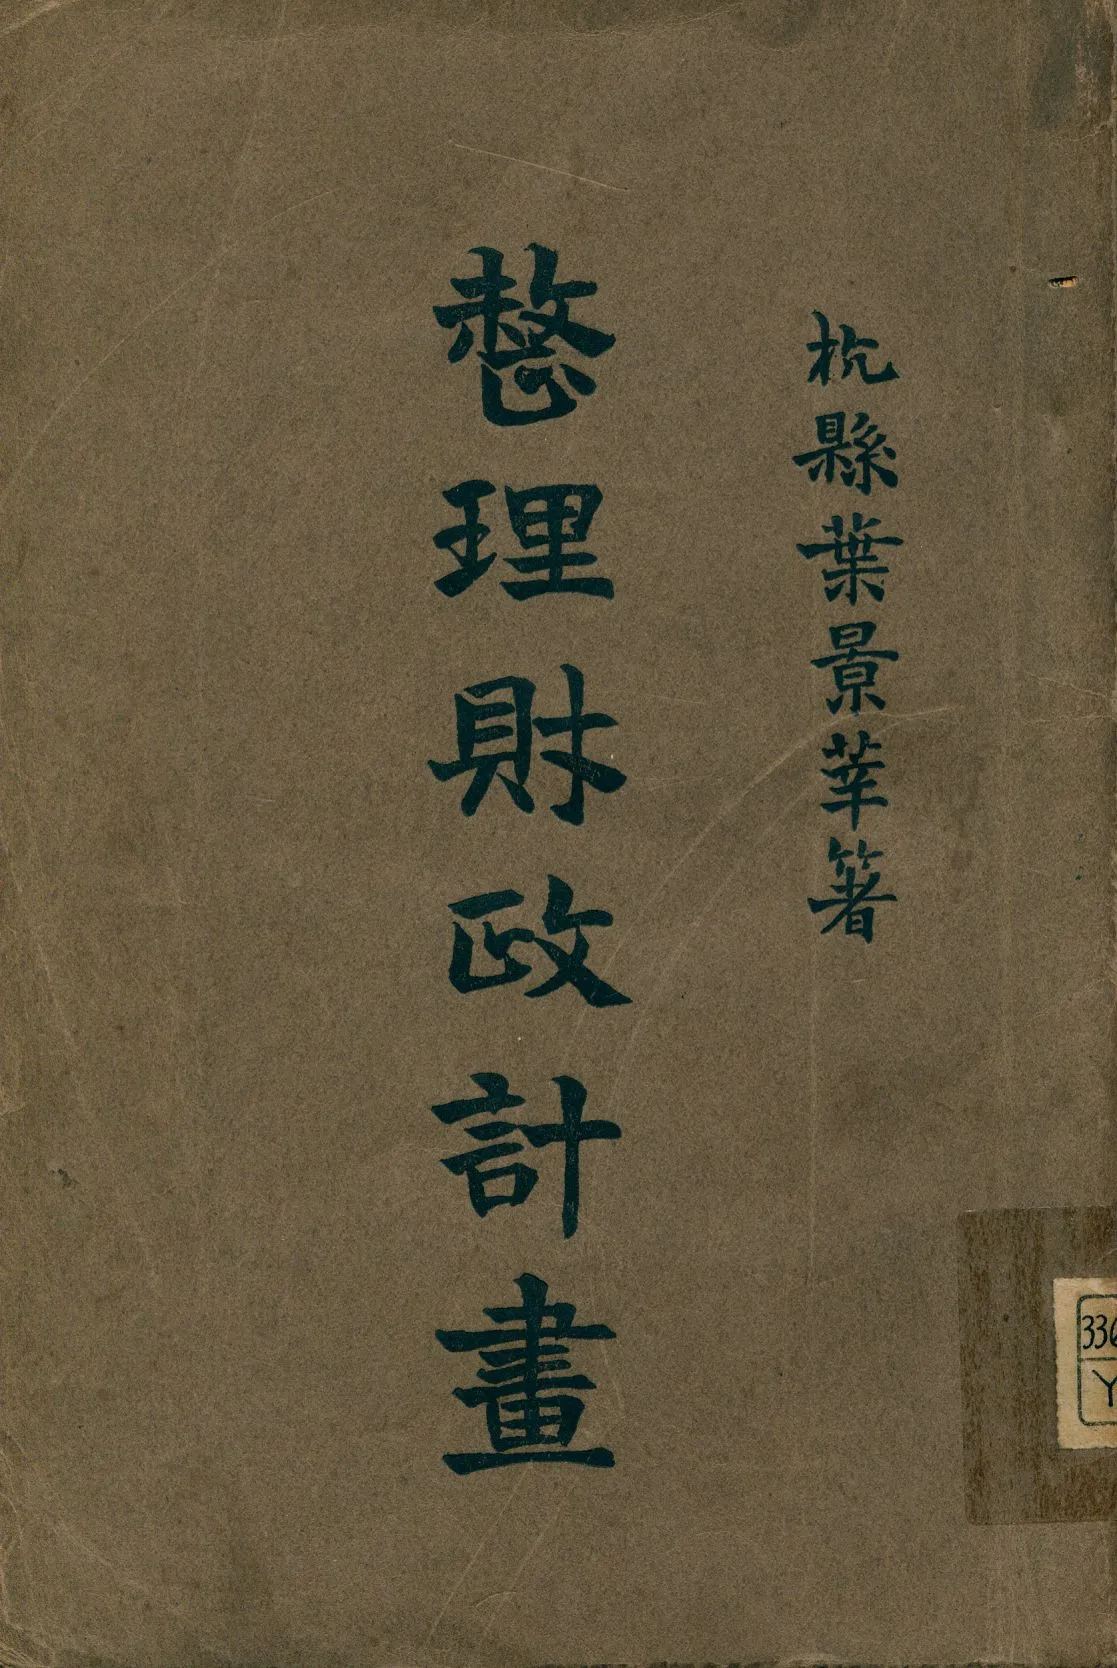 杭縣葉景莘箸
整理財政計畫
336
Y